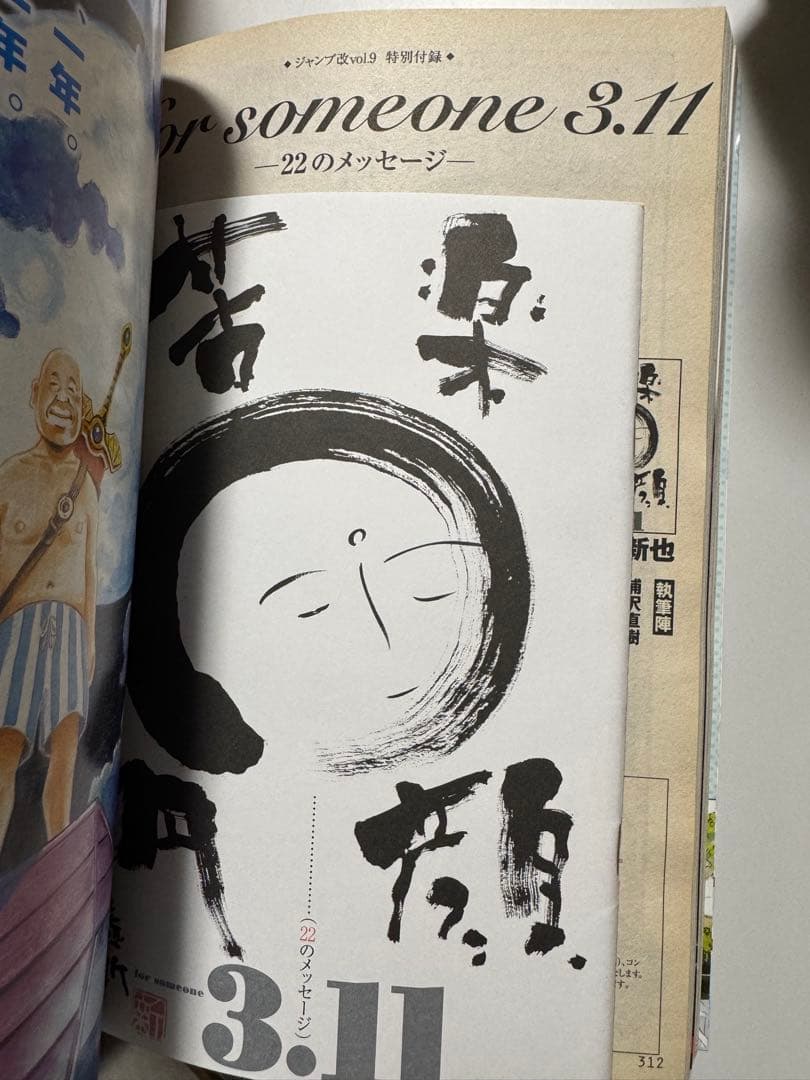 一年。
年。
◆ジャンプ改vol.9 特別付録◆
for someone 3.11
―22のメッセージ―
楽
苦
顔
円
………………(22のメッセージ)
for someone
3.11
楽
顔
新也
執筆陣
浦沢直樹
)、コン
します。
す。
312